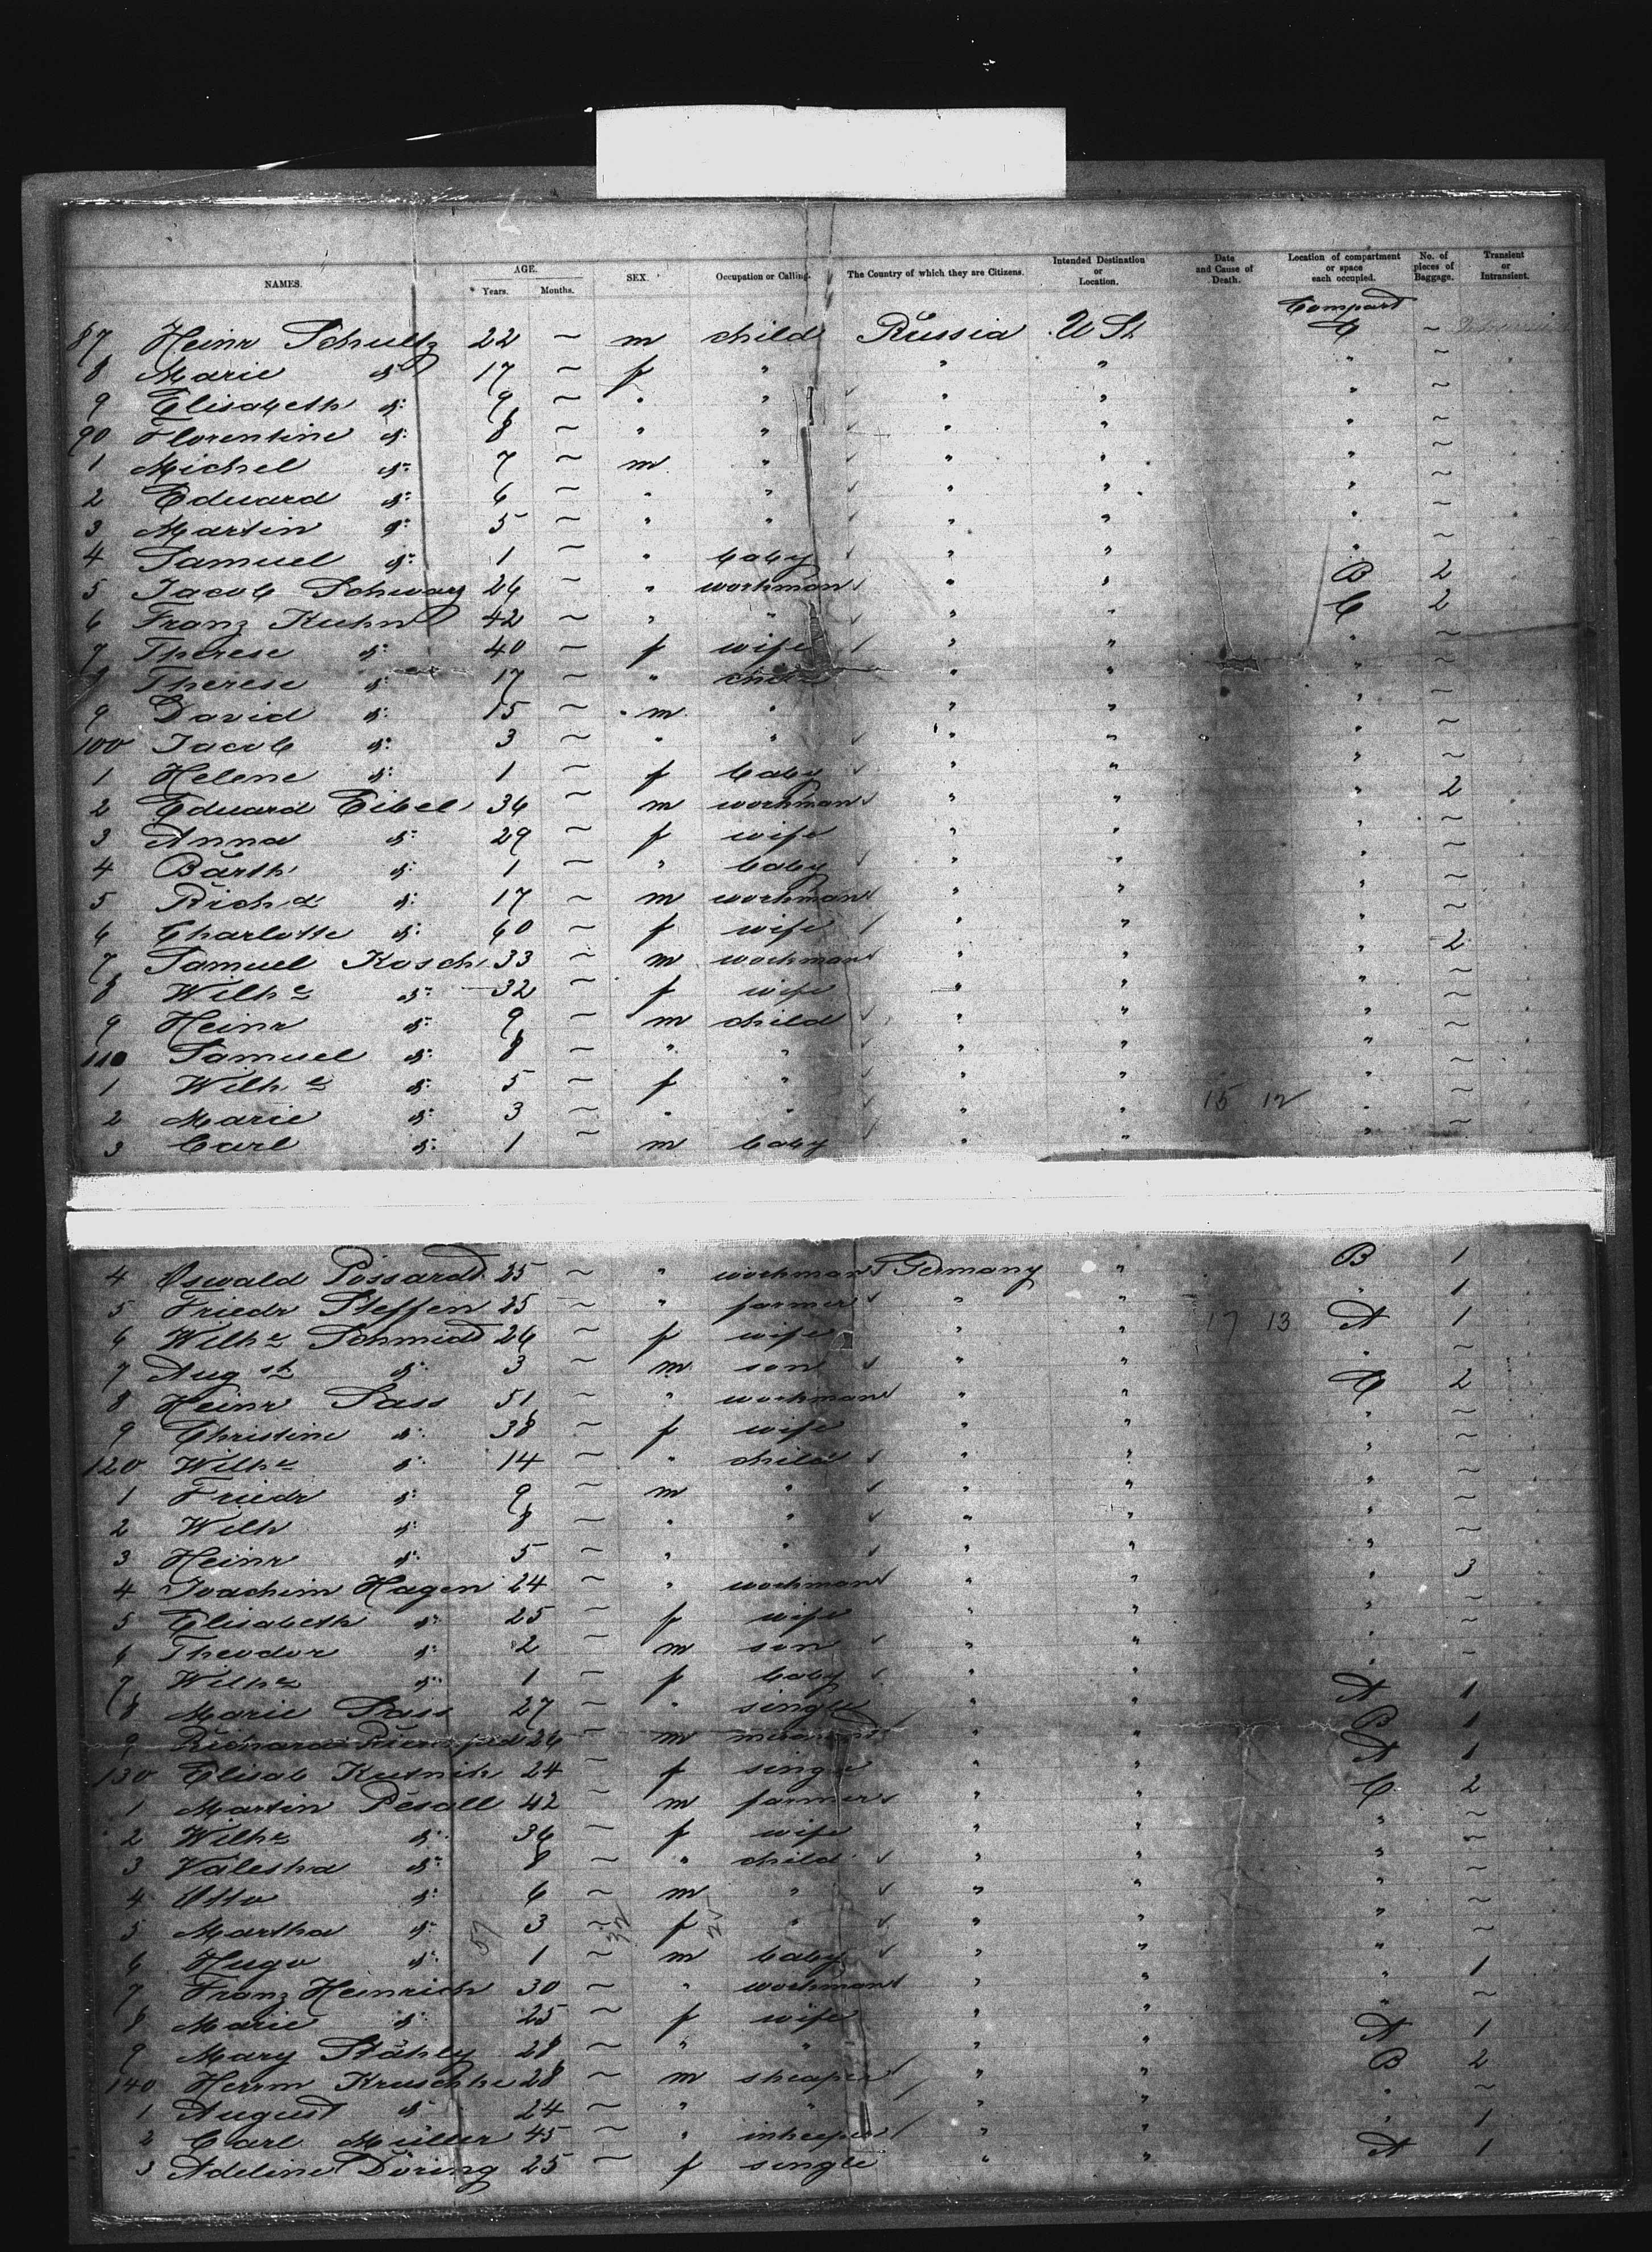 NAMES. AGE. Years. Months. SEX. Occupation or Calling. The Country of which they are Citizens. Intended Destination or Location. Date and Cause of Death. Location of compartment or space each occupied. No. of pieces of Baggage. Transient or Intransient.
Compart
87 Heinr Schultz 22 ~ m child Russia U St C ~
8 Marie do 17 ~ f " " " " ~
9 Elisabeth do 9 ~ " " " " " ~
90 Florentine do 8 ~ " " " " " ~
1 Michel do 7 ~ m " " " " ~
2 Eduard do 6 ~ " " " " " ~
3 Martin do 5 ~ " " " " " ~
4 Samuel do 1 ~ " baby " " " ~
5 Jacob Schwarz 26 ~ " workman " " B 2
6 Franz Kuhn 42 ~ " " " " C 2
7 Therese do 40 ~ f wife " " " ~
8 Therese do 17 ~ " child " " " ~
9 David do 15 ~ m " " " " ~
100 Jacob do 3 ~ " " " " " ~
1 Helene do 1 ~ f baby " " " ~
2 Eduard Eibel 36 ~ m workman " " " 2
3 Anna do 29 ~ f wife " " " ~
4 Barth do 1 ~ " baby " " " ~
5 Richd do 17 ~ m workman " " " ~
6 Charlotte do 60 ~ f wife " " " ~
7 Samuel Kosch 33 ~ m workman " " " 2
8 Wilhe do 32 ~ f wife " " " ~
9 Heinr do 9 ~ m child " " " ~
110 Samuel do 8 ~ " " " " " ~
1 Wilhe do 5 ~ f " " " " ~
2 Marie do 3 ~ " " " " 15 12 " ~
3 Carl do 1 ~ m baby " " " ~
4 Oswald Possardt 25 ~ " workman Germany " B 1
5 Friedr Steffen 25 ~ " farmer " " " 1
6 Wilhe Schmidt 26 ~ f wife " " 17 13 A 1
7 Augst do 3 ~ m son " " " ~
8 Heinr Sass 51 ~ " workman " " C 2
9 Christine do 38 ~ f wife " " " ~
120 Wilhe do 14 ~ " child " " " ~
1 Friedr do 9 ~ m " " " " ~
2 Wilh do 8 ~ " " " " " ~
3 Heinr do 5 ~ " " " " " ~
4 Joachim Hagen 24 ~ " workman " " " 3
5 Elisabeth do 25 ~ f wife " " " ~
6 Theodor do 2 ~ m son " " " ~
7 Wilhe do 1 ~ f baby " " " ~
8 Marie Sass 27 ~ " single " " A 1
9 Richard 26 ~ m " " B 1
130 Elisab Kutnik 24 ~ f single " " A 1
1 Martin Pesall 42 ~ m farmer " " C 2
2 Wilhe do 36 ~ f wife " " " ~
3 Valesha do 8 ~ " child " " " ~
4 Otto do 6 ~ m " " " " ~
5 Martha do 57 3 ~ 32 f 25 " " " " ~
6 Hugo do 1 ~ m baby " " " ~
7 Franz Heinrich 30 ~ " workman " " " 1
8 Marie do 25 ~ f wife " " " ~
9 Mary Stähly 28 ~ " " " " A 1
140 Herrm Kruschke 28 ~ m sheaper " " B 2
1 August do 24 ~ " " " " " ~
2 Carl Müller 45 ~ " inkeeper " " " 1
3 Adeline Döring 25 ~ f single " " A 1